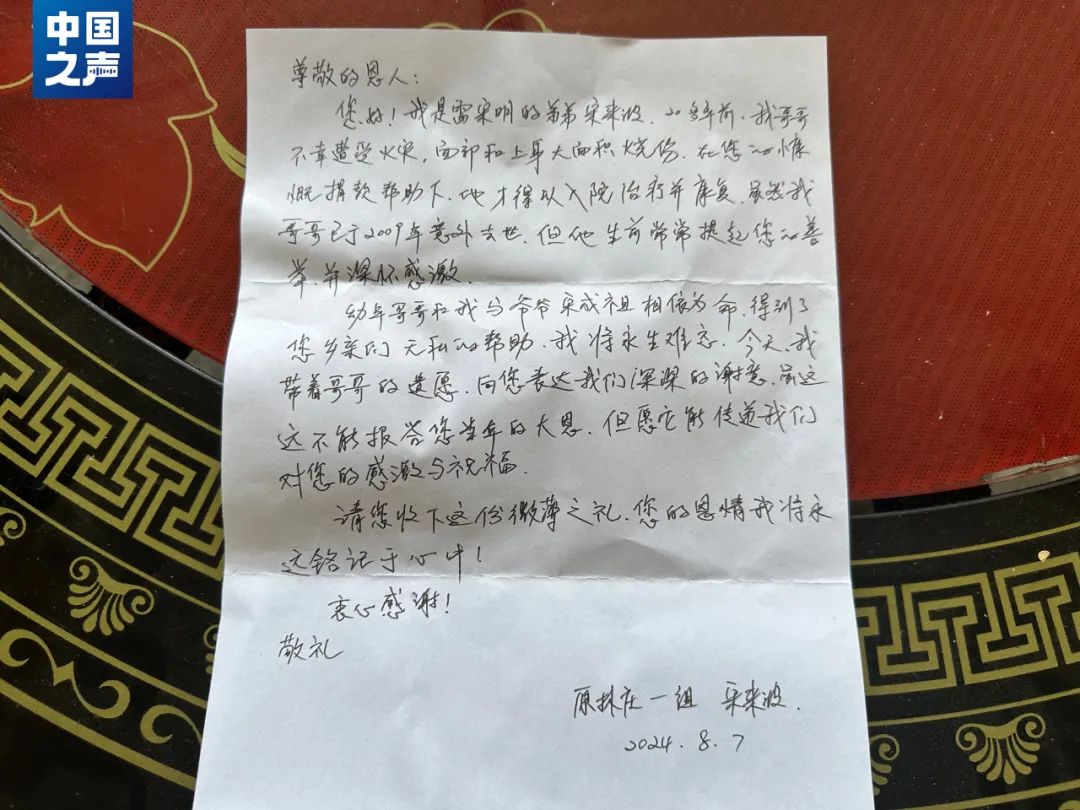 中国
之声
尊敬的恩人：
您好！我是雷宋明的弟弟宋来波、20多年前、我哥哥
不幸遭受火灾，面部和上身大面积烧伤、在您的慷
慨捐款帮助下、他才得以入院治疗并康复、虽然我
哥哥已于2009年意外去世、但他生前常常提起您的善
举、并深怀感激、
幼年哥哥和我与爷爷宋成祖相依为命、得到了
您乡亲们无私的帮助、我将永生难忘、今天、我
带着哥哥的遗愿、向您表达我们深深的谢意、虽这
远不能报答您当年的大恩、但愿它能传递我们
对您的感激与祝福、
请您收下这份微薄之礼、您的恩情我将永
远铭记于心中！
衷心感谢！
敬礼
原林庄一组 宋来波.
2024.8.7